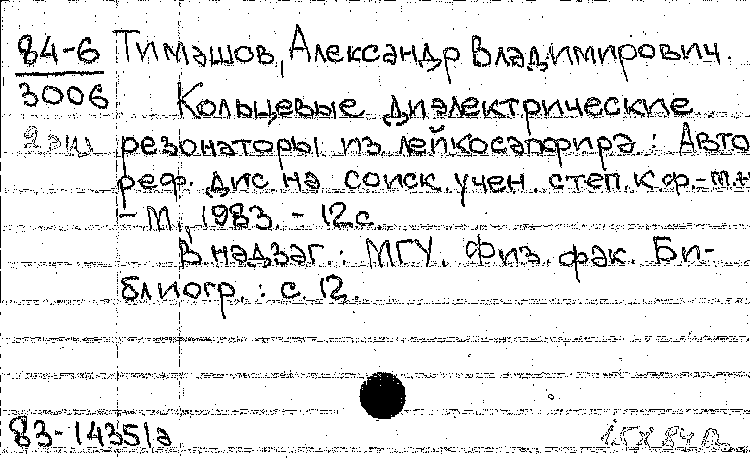 84-6 Тимашов, Александр Владимирович.
3006
Кольцевые диэлектрические
резонаторы из лейкосапфира: Авто
реф. дис на соиск. учен. степ. к.ф.-м.н
- М., 1983. - 12 с.
В надзаг.: МГУ. Физ. фак. Би-
блиогр.: с. 12.
83-14351а